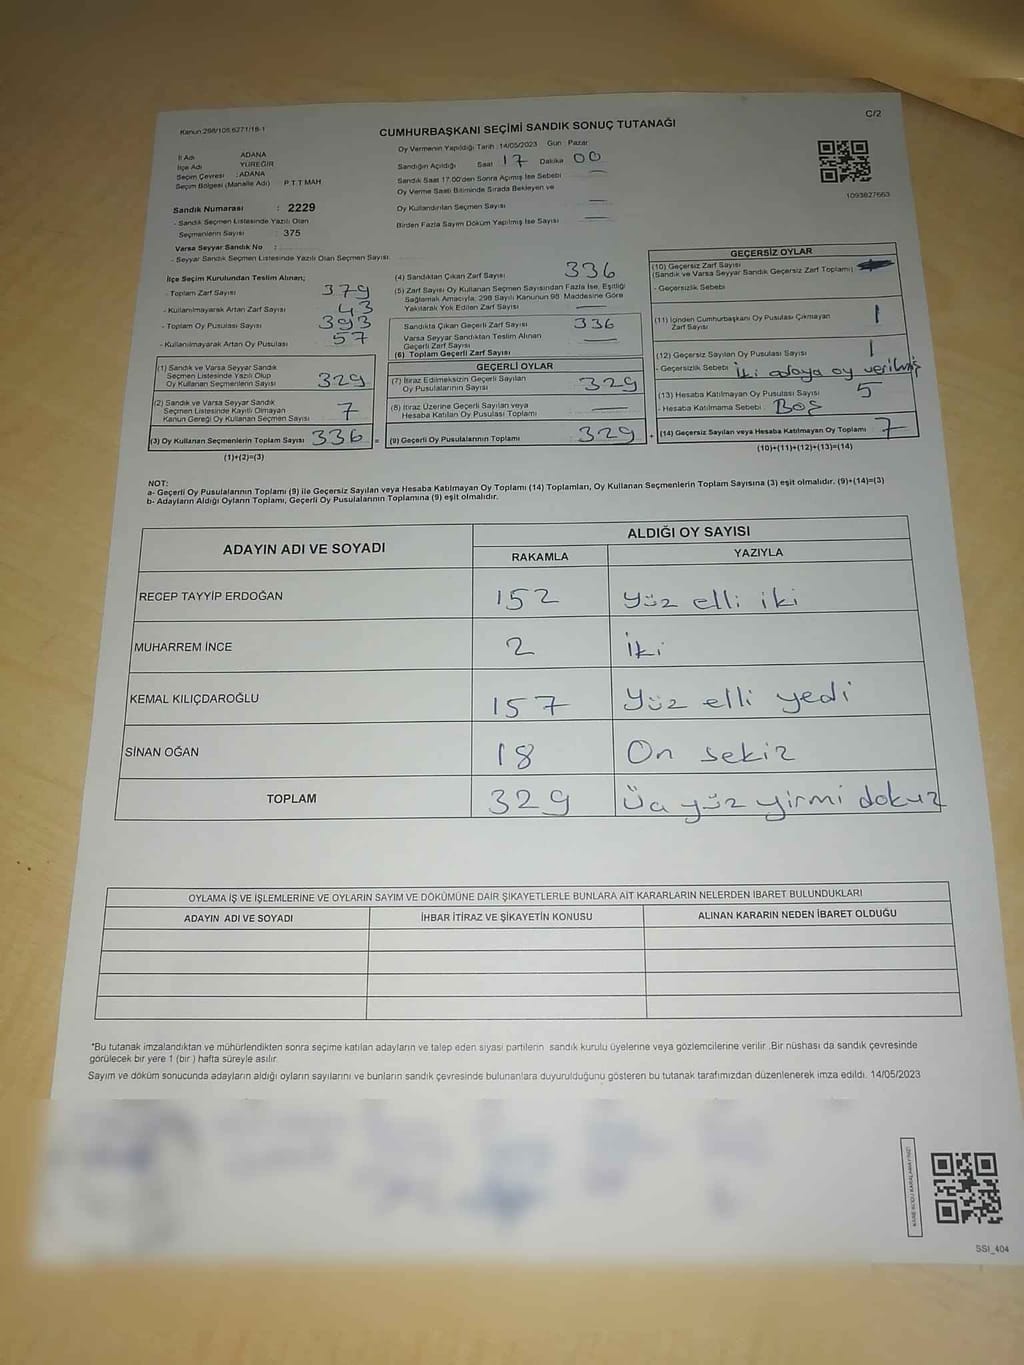 Kanun 298/105,6271/18-1
CUMHURBAŞKANI SEÇİMİ SANDIK SONUÇ TUTANAĞI
C/2
İl Adı ADANA
İlçe Adı YÜREĞİR
Seçim Çevresi : ADANA
Seçim Bölgesi (Mahalle Adı) P T T MAH
Sandık Numarası : 2229
- Sandık Seçmen Listesinde Yazılı Olan
Seçmenlerin Sayısı : 375
Varsa Seyyar Sandık No :
- Seyyar Sandık Seçmen Listesinde Yazılı Olan Seçmen Sayısı:
Oy Vermenin Yapıldığı Tarih : 14/05/2023 Gün : Pazar
Sandığın Açıldığı Saat 17 Dakika 00
Sandık Saat 17.00'den Sonra Açımış İse Sebebi —
Oy Verme Saati Bitiminde Sırada Bekleyen ve
Oy Kullandırılan Seçmen Sayısı —
Birden Fazla Sayım Döküm Yapılmış İse Sayısı —
1093827663
İlçe Seçim Kurulundan Teslim Alınan;
- Toplam Zarf Sayısı 379
- Kullanılmayarak Artan Zarf Sayısı 43
- Toplam Oy Pusulası Sayısı 393
- Kullanılmayarak Artan Oy Pusulası 57
(1) Sandık ve Varsa Seyyar Sandık
Seçmen Listesinde Yazılı Olup
Oy Kullanan Seçmenlerin Sayısı 329
(2) Sandık ve Varsa Seyyar Sandık
Seçmen Listesinde Kayıtlı Olmayan
Kanun Gereği Oy Kullanan Seçmen Sayısı 7
(3) Oy Kullanan Seçmenlerin Toplam Sayısı 336 =
(1)+(2)=(3)
(4) Sandıktan Çıkan Zarf Sayısı 336
(5) Zarf Sayısı Oy Kullanan Seçmen Sayısından Fazla İse, Eşitliği
Sağlamak Amacıyla, 298 Sayılı Kanunun 98. Maddesine Göre
Yakılarak Yok Edilen Zarf Sayısı —
Sandıkta Çıkan Geçerli Zarf Sayısı 336
Varsa Seyyar Sandıktan Teslim Alınan
Geçerli Zarf Sayısı —
(6) Toplam Geçerli Zarf Sayısı
GEÇERLİ OYLAR
(7) İtiraz Edilmeksizin Geçerli Sayılan
Oy Pusulalarının Sayısı 329
(8) İtiraz Üzerine Geçerli Sayılan veya
Hesaba Katılan Oy Pusulası Toplamı —
(9) Geçerli Oy Pusulalarının Toplamı 329 +
GEÇERSİZ OYLAR
(10) Geçersiz Zarf Sayısı
(Sandık ve Varsa Seyyar Sandık Geçersiz Zarf Toplamı)
- Geçersizlik Sebebi
(11) İçinden Cumhurbaşkanı Oy Pusulası Çıkmayan
Zarf Sayısı 1
(12) Geçersiz Sayılan Oy Pusulası Sayısı 1
- Geçersizlik Sebebi iki adaya oy verilmiş
(13) Hesaba Katılmayan Oy Pusulası Sayısı 5
- Hesaba Katılmama Sebebi : Boş
(14) Geçersiz Sayılan veya Hesaba Katılmayan Oy Toplamı 7
(10)+(11)+(12)+(13)=(14)
NOT:
a- Geçerli Oy Pusulalarının Toplamı (9) ile Geçersiz Sayılan veya Hesaba Katılmayan Oy Toplamı (14) Toplamları, Oy Kullanan Seçmenlerin Toplam Sayısına (3) eşit olmalıdır. (9)+(14)=(3)
b- Adayların Aldığı Oyların Toplamı, Geçerli Oy Pusulalarının Toplamına (9) eşit olmalıdır.
ADAYIN ADI VE SOYADI ALDIĞI OY SAYISI
RAKAMLA YAZIYLA
RECEP TAYYİP ERDOĞAN 152 Yüz elli iki
MUHARREM İNCE 2 İki
KEMAL KILIÇDAROĞLU 157 Yüz elli yedi
SİNAN OĞAN 18 On sekiz
TOPLAM 329 Üç yüz yirmi dokuz
OYLAMA İŞ VE İŞLEMLERİNE VE OYLARIN SAYIM VE DÖKÜMÜNE DAİR ŞİKAYETLERLE BUNLARA AİT KARARLARIN NELERDEN İBARET BULUNDUKLARI
ADAYIN ADI VE SOYADI İHBAR İTİRAZ VE ŞİKAYETİN KONUSU ALINAN KARARIN NEDEN İBARET OLDUĞU
*Bu tutanak imzalandıktan ve mühürlendikten sonra seçime katılan adayların ve talep eden siyasi partilerin sandık kurulu üyelerine veya gözlemcilerine verilir .Bir nüshası da sandık çevresinde
görülecek bir yere 1 (bir ) hafta süreyle asılır.
Sayım ve döküm sonucunda adayların aldığı oyların sayılarını ve bunların sandık çevresinde bulunanlara duyurulduğunu gösteren bu tutanak tarafımızdan düzenlenerek imza edildi. 14/05/2023
KARE KODU KARALAMAYINIZ!
SSI_404